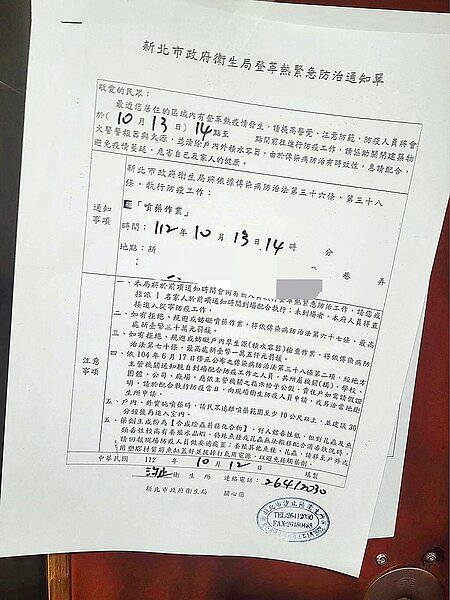 新北市政府衛生局登革熱緊急防治通知單
敬愛的民眾：
最近您居住的區域內有登革熱疫情發生，請提高警覺、注意防範，防疫人員將會
於(10月13日)14點至　　點間前往進行防疫工作，請協助關閉建築物
火警警報器與火源，並清除戶內外積水容器。由於傳染病防治有時效性，急請配合，
避免疫情蔓延，危害自己及家人的健康。
通知事項
新北市政府衛生局將依據傳染病防治法第三十六條、第三十八
條，執行防疫工作：
「噴藥作業」
時間：112年10月13日14時　分
地點：新
巷　弄
注意事項
一、本局將於前項通知時間會同有關人員執行登革熱緊急防治工作，請您或
指派1名家人於前項通知時間到場配合執行；未到場者，本府人員得直
接進入從事防疫工作。
二、如有拒絕、規避或妨礙噴藥作業，得依傳染病防治法第六十七條，最高
處新臺幣三十萬元罰鍰。
三、如有拒絕、規避或妨礙戶內孳生源(積水容器)檢查作業，得依傳染病防
治法第七十條，最高處新臺幣一萬五仟元罰鍰。
四、依104年6月17日修正公布之傳染病防治法第三十八條第二項，經地方
主管機關通知親自到場配合防疫工作之人員，其所屬機關(構)、學校、
團體、公司、廠場，應依主管機關之指示給予公假。貴住戶如需請假證
明，請於配合執行防疫當日，向現場衛生防疫人員申請，或另洽當地衛
生所申請。
五、戶內、外實施噴藥時，請民眾遠離噴藥範圍至少10公尺以上，並建議30
分鐘後再進入室內。
六、藥劑主成份為【合成除蟲菊精化合物】，對人體毒性低，但對昆蟲及魚
請四組現場防疫人員做妥適處置；
用塑膠材質將魚缸蓋好並拔掉打氣用電源，以避免接觸藥劑。
中華民國　112　年　10　月　12　日　填製
汐止　衛生所　連絡電話：26412030
新北市政府衛生局　關心您
TEL:26412030
FAX:26480468